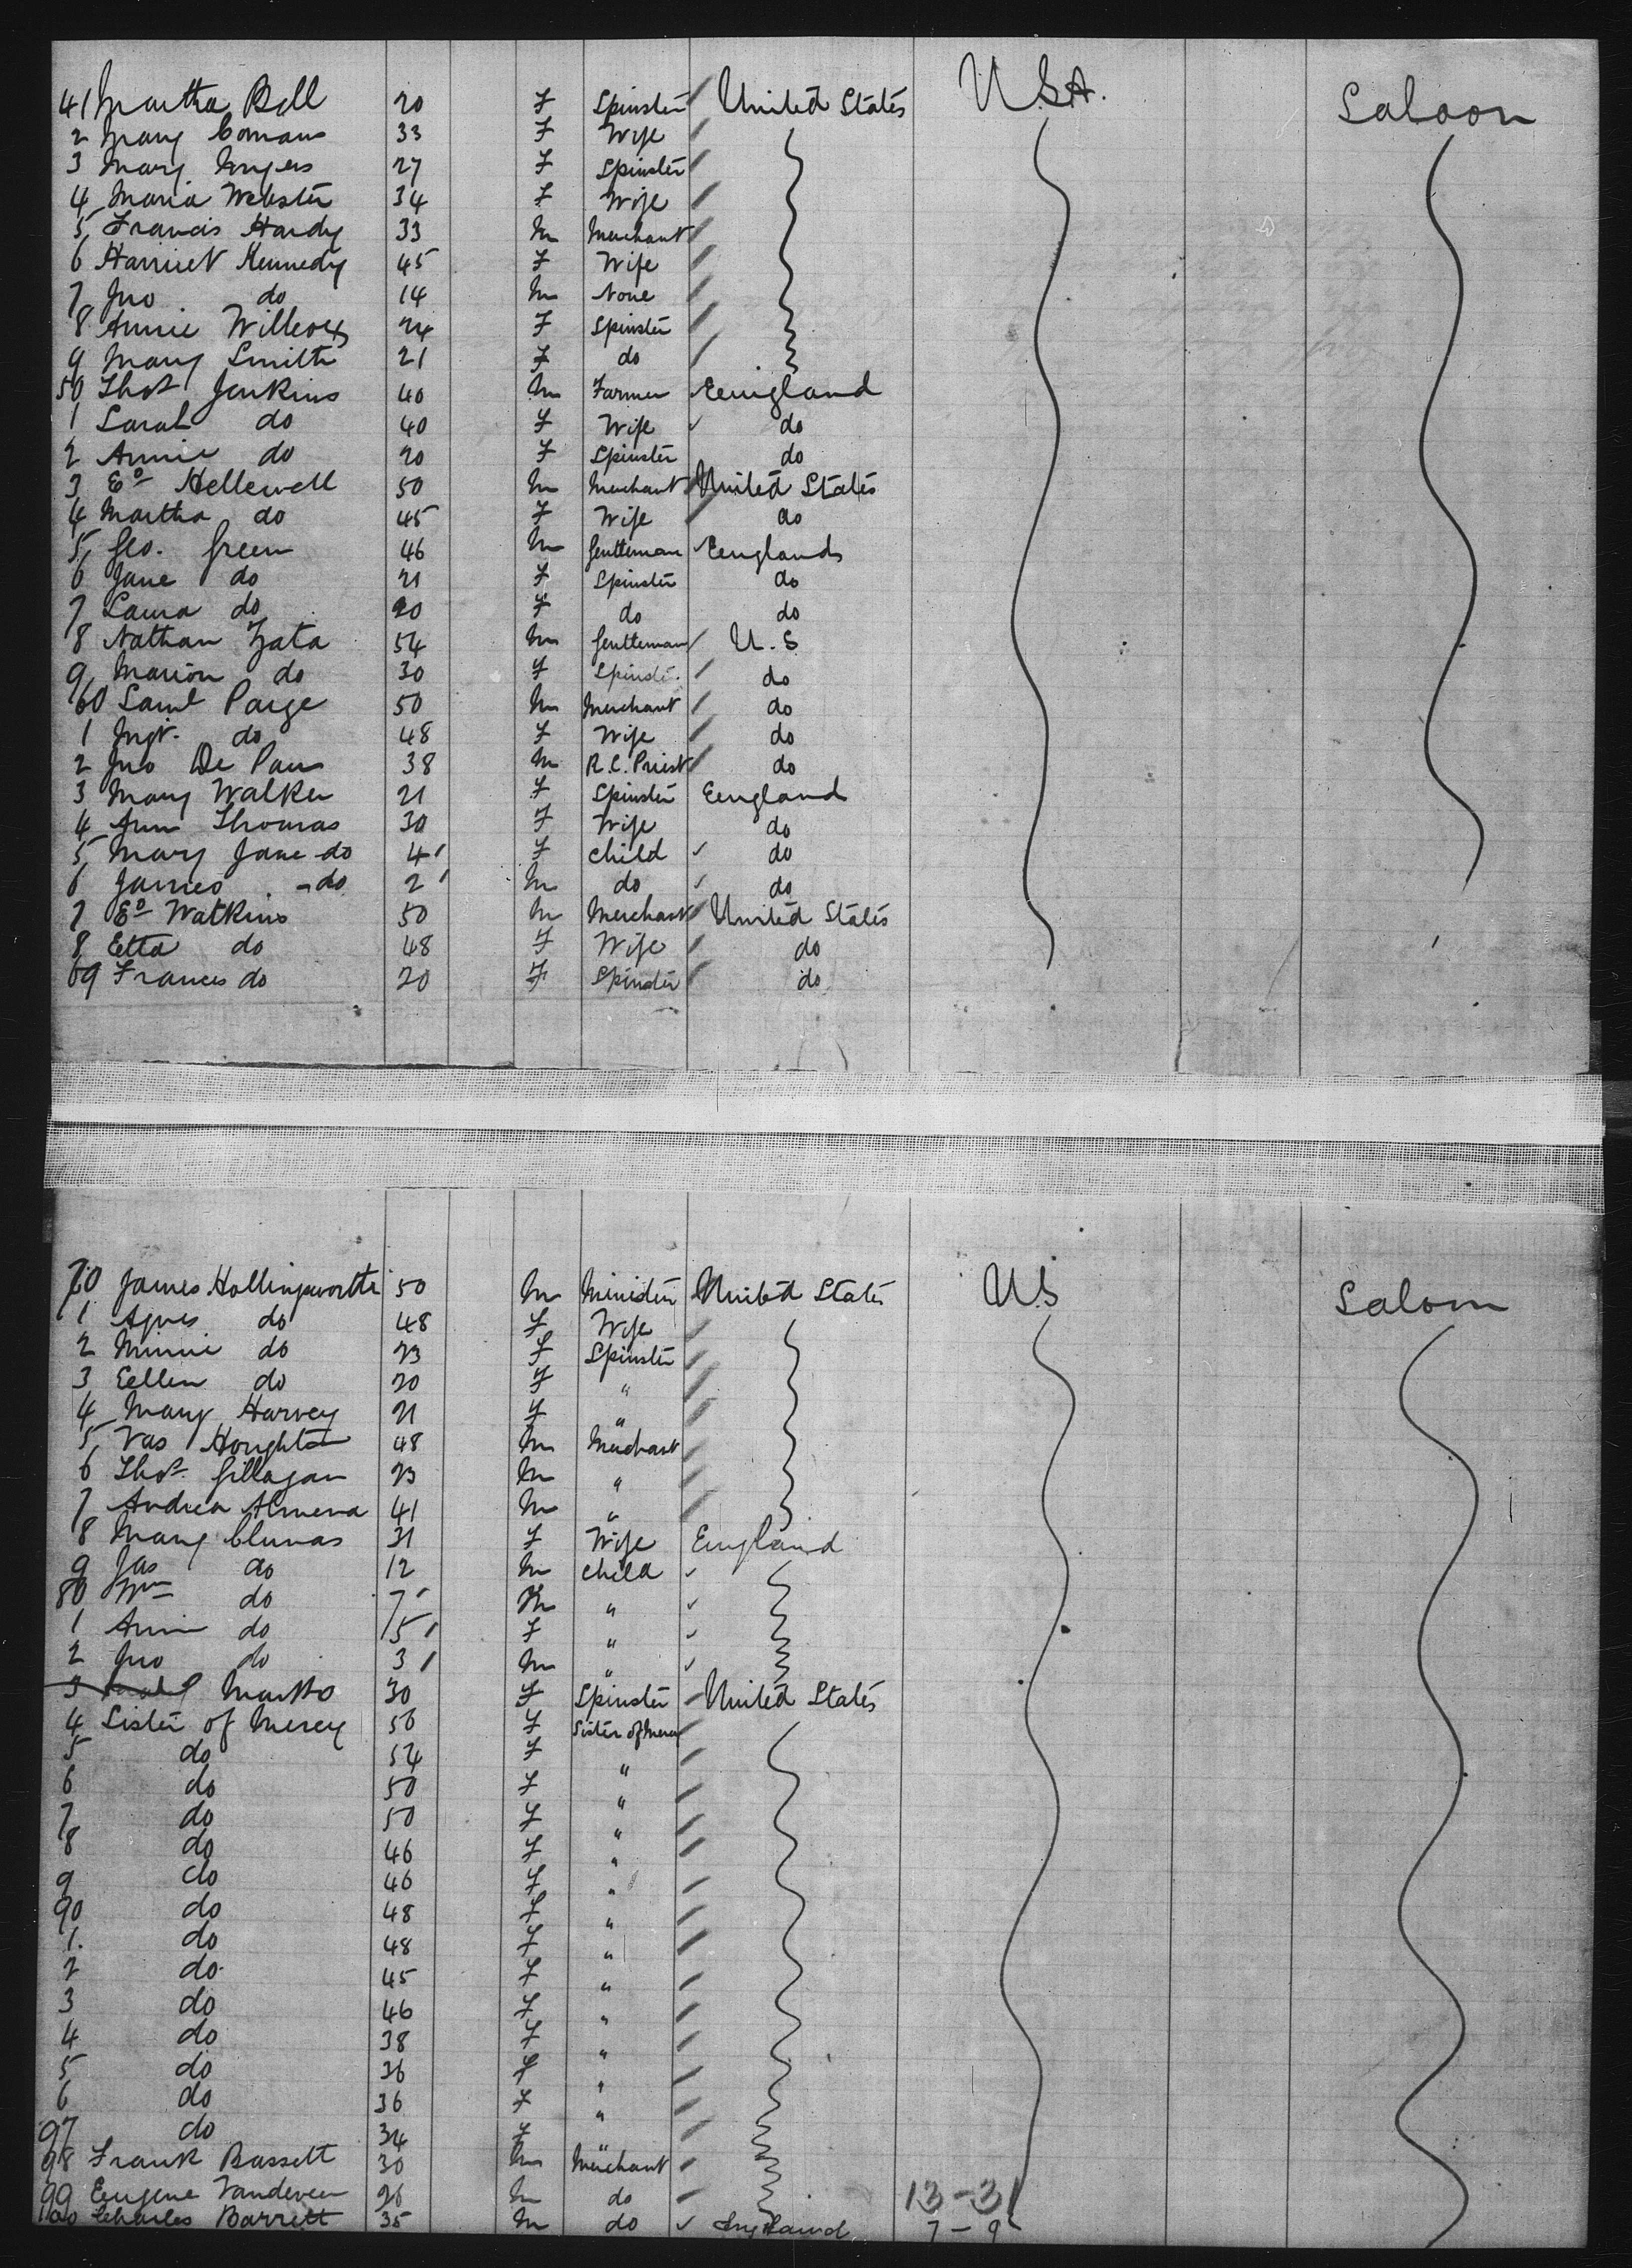 41 Martha Bell 20 F Spinster United States U.S.A. Saloon
2 Mary Comans 33 F Wife
3 Mary 27 F Spinster
4 Maria Webster 34 F Wife
5 Francis Hardy 33 M Merchant
6 Harriet Kennedy 45 F Wife
7 Jno do 14 M None
8 Annie Willcox 24 F Spinster
9 Mary Smith 21 F do
50 Thos Jenkins 40 M Farmer England
1 Sarah do 40 F Wife do
2 Annie do 20 F Spinster do
3 Ed Hellewell 50 M Merchant United States
4 Martha do 45 F Wife do
5 Geo. Green 46 M Gentleman England
6 Jane do 21 F Spinster do
7 Laura do 20 F do do
8 Nathan 54 M Gentleman U.S
9 Marion do 30 F Spinster do
60 Saml Paige 50 M Merchant do
1 Mgt. do 48 F Wife do
2 Jno De Paus 38 M R.C. Priest do
3 Mary Walker 21 F Spinster England
4 Ann Thomas 30 F Wife do
5 Mary Jane do 4 F child do
6 James do 2 M do do
7 Ed Watkins 50 M Merchant United States
8 Etta do 48 F Wife do
69 Frances do 20 F Spinster do
70 James Hollingsworth 50 M Minister United States U.S Saloon
1 Agnes do 48 F Wife
2 Minnie do 23 F Spinster
3 Ellen do 20 F "
4 Mary Harvey 21 F "
5 Jas Houghton 48 M Merchant
6 Thos. Gillagan 23 M "
7 Andrea Almena 41 M "
8 Mary Clunas 31 F Wife England
9 Jas do 12 M child
80 Wm do 7 M "
1 Ann do 5 F "
2 Jno do 3 M "
3 30 F Spinster United States
4 Sister of Mercy 56 F Sister of Mercy
5 do 54 F "
6 do 50 F "
7 do 50 F "
8 do 46 F "
9 do 46 F "
90 do 48 F "
1. do 48 F "
2 do 45 F "
3 do 46 F "
4 do 38 F "
5 do 36 F "
6 do 36 F "
97 do 34 F "
98 Frank Bassett 30 M Merchant
99 Eugene Vandeveer 26 M do 13-31
100 Charles Barrett 35 M do England 7-9